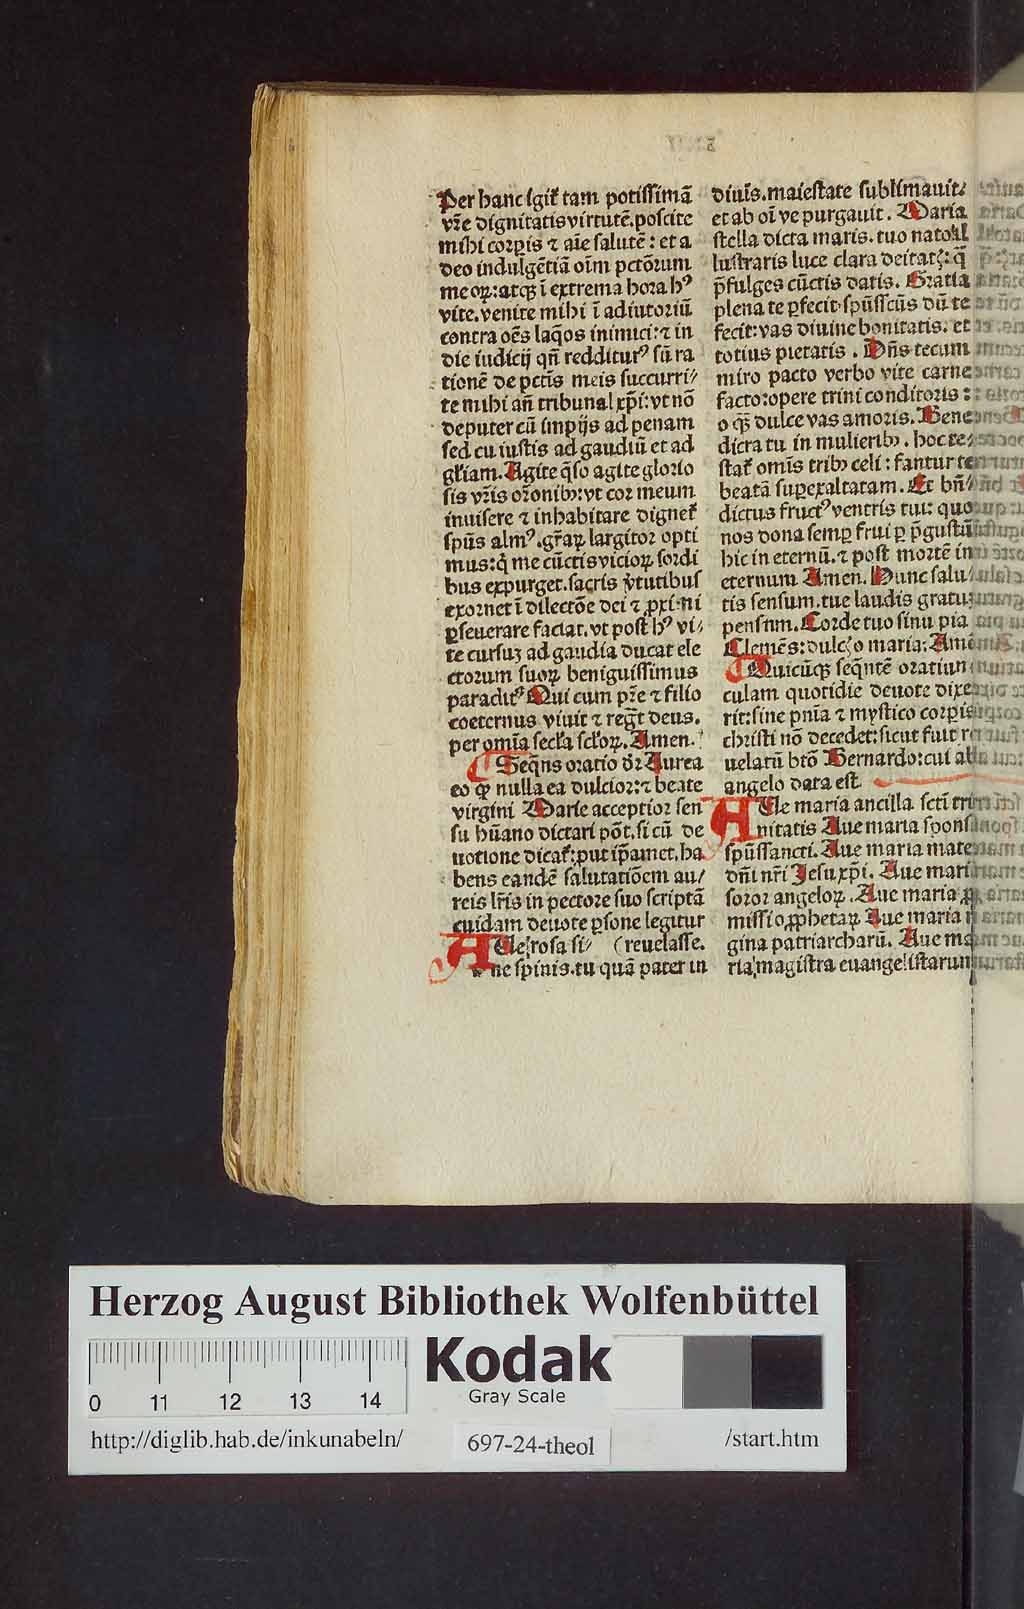 Per hanc igit᷑ tam potissimā
vr̄e dignitatis virtutē. poscite
mihi corꝑis ⁊ aīe salutē: et a
deo indulgētiā oīm pctōrum
meoꝝ: atqꝫ ī extrema hora hꝰ
vite. venite mihi ī adiutoriū
contra oēs laq̄os inimici: ⁊ in
die iudicij qn̄ redditurꝰ sū ra
tionē de pctīs meis succurri⸗
te mihi an̄ tribunal xp̄i: vt nō
deputer cū impijs ad penam
sed cu iustis ad gaudiū et ad
gl̄iam. Agite q̄so agite glorio
sis vr̄is or̄onibꝫ: vt cor meum
inuisere ⁊ inhabitare dignet᷑
spūs almꝰ. gr̄aꝝ largitor opti
mus: qͥ me cūctis vicioꝝ sordi
bus expurget. sacris v̓tutibus
exornet ī dilectōe dei ⁊ ꝓxi⸗ni
ꝑseuerare faciat. vt post hꝰ vi⸗
te cursuꝫ ad gaudia ducat ele
ctorum suoꝝ benignissimus
paraclitꝰ Qui cum pr̄e ⁊ filio
coeternus viuit ⁊ regt̄ deus.
per omīa secl̄a scl̄oꝝ. Amen.
Seq̄ns oratio dr̄ Aurea
eo ꝙ nulla ea dulcior: ⁊ beate
virgini Marie acceptior sen
su hūano dictari pōt. si cū de
uotione dicat᷑: ꝓut ip̄amet. ha
bens eandē salutatiōem au⸗
reis lr̄is in pectore suo scriptā
cuidam deuote ꝑsone legitur
AUe rosa si⸗ (reuelasse.
ne spinis. tu quā pater in
diuīs. maiestate sublimauit⸗
et ab oī ve purgauit. Maria
stella dicta maris. tuo natoīl
lustraris luce clara deitatꝭ: q̄
p̄fulges cūctis datis. Gratia
plena te ꝑfecit. spūsscūs dū te
fecit: vas diuine bonitatis. et
totius pietatis. Dn̄s tecum
miro pacto verbo vite carne
facto: opere trini conditoris:
o qꝫ dulce vas amoris. Bene
dicta tu in mulieribꝫ. hoc te⸗
stat᷑ omīs tribꝫ celi: fantur te
beatā suꝑexaltatam. Et bn̄
dictus fructꝰ ventris tui: quo
nos dona semꝑ frui ꝑ p̄gustū
hic in eternū. ⁊ post mortē in
eternum Amen. Hunc salu⸗
tis sensum. tue laudis gratuꝫ
pensum. Corde tuo sinu pia
Clemēs: dulcꝭ o maria: Amē
Quicūqꝫ seq̄ntē oratiun
culam quotidie deuote dixe
rit: sine pn̄ia ⁊ mystico corꝑis
christi nō decedet: sicut fuit re
uelatū btō Bernardo: cui ab
angelo data est
AUe maria ancilla sctī tri
nitatis Aue maria sponsa
spūssancti. Aue maria mate
dn̄i nr̄i Jesu xp̄i. Aue mari
soror angeloꝝ. Aue maria ꝓ
missio ꝓphetaꝝ Aue maria
gina patriarcharū. Aue ma
ria magistra euangelistarum
Herzog August Bibliothek Wolfenbüttel
0 11 12 13 14
Kodak
Gray Scale
http://diglib.hab.de/inkunabeln/
697-24-theol
/start.htm